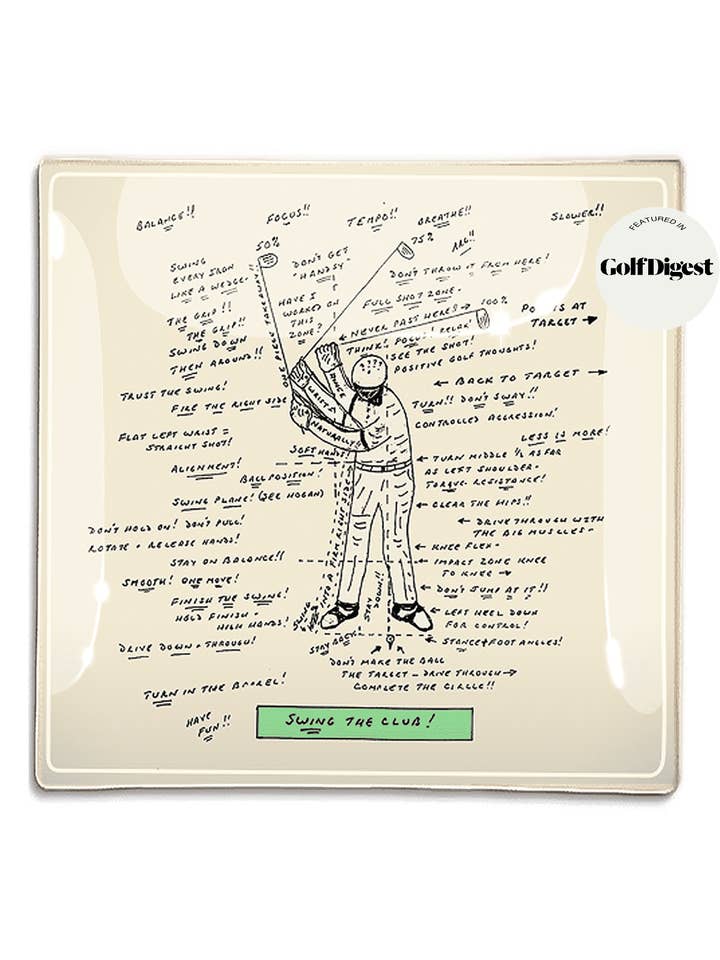 BALANCE!!
FOCUS!!
TEMPO!!
BREATHE!!
SLOWER!!
FEATURED IN
GolfDigest
50%
75%
ARG!!
SWING
EVERY IRON
LIKE A WEDGE.
DON'T GET
"HANDSY"
DON'T THROW IT FROM HERE!
THE GRIP!!
THE GRIP!!
HAVE I
WORKED ON
THIS
ZONE?
FULL SHOT ZONE.
← NEVER PAST HERE! → 100%
POINTS AT
TARGET →
SWING DOWN
THEN AROUND!!
ONE PIECE TAKEAWAY!!
THINK! FOCUS! RELAX!
SEE THE SHOT!
POSITIVE GOLF THOUGHTS!
???
TRUST THE SWING!
FIRE THE RIGHT SIDE
HINGE
WRISTS
NATURALLY!!
← BACK TO TARGET →
TURN!! DON'T SWAY!!
CONTROLLED AGGRESSION!
FLAT LEFT WRIST =
STRAIGHT SHOT!
LESS IS MORE!
SOFT HANDS!
ALIGNMENT!
BALL POSITION!
← TURN MIDDLE ½ AS FAR
AS LEFT SHOULDER.
TORQUE. RESISTANCE!
SWING PLANE! (SEE HOGAN)
← CLEAR THE HIPS!!
DON'T HOLD ON! DON'T PULL!
ROTATE + RELEASE HANDS!
← DRIVE THROUGH WITH
THE BIG MUSCLES.
INTO A FIRM RIGHT SIDE
← KNEE FLEX.
STAY ON BALANCE!!
← IMPACT ZONE KNEE
TO KNEE →
SMOOTH! ONE MOVE!
STAY
DOWN!!
← DON'T JUMP AT IT!!
FINISH THE SWING!
HOLD FINISH.
HIGH HANDS!
← LEFT HEEL DOWN
FOR CONTROL!
STAY BACK
← STANCE + FOOT ANGLES!
DRIVE DOWN + THROUGH!
DON'T MAKE THE BALL
THE TARGET – DRIVE THROUGH →
COMPLETE THE CIRCLE!!
TURN IN THE BARREL!
HAVE
FUN!!
SWING THE CLUB!